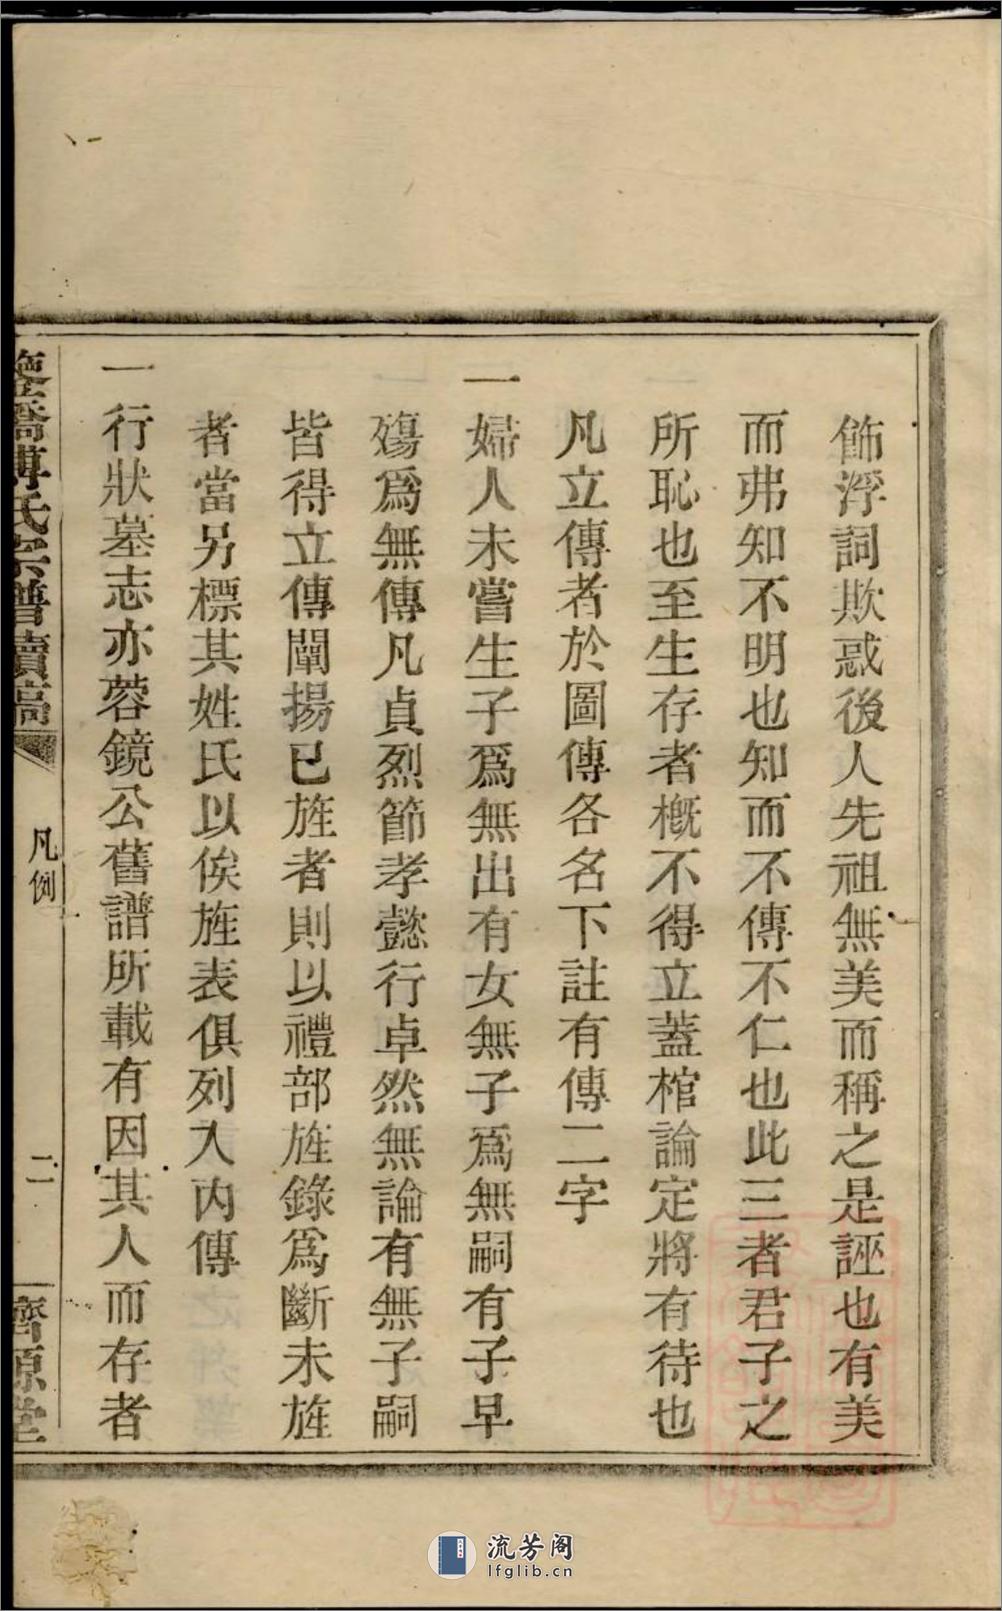 飾浮詞欺惑後人先祖無美而稱之是誣也有美
而弗知不明也知而不傳不仁也此三者君子之
所恥也至生存者槪不得立蓋棺論定將有待也
凡立傳者於圖傳各名下註有傳二字
一婦人未嘗生子爲無出有女無子爲無嗣有子早
殤爲無傳凡貞烈節孝懿行卓然無論有無子嗣
皆得立傳闡揚已旌者則以禮部旌錄爲斷未旌
者當另標其姓氏以俟旌表俱列入內傳
一行狀墓志亦蓉鏡公舊譜所載有因其人而存者
橋傅氏宗譜續稿
凡例
二
濟源堂
流芳阁
lfglib.cn